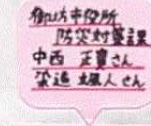 御坊市役所
防災対策課
中西 正寛さん
染道 楓人さん